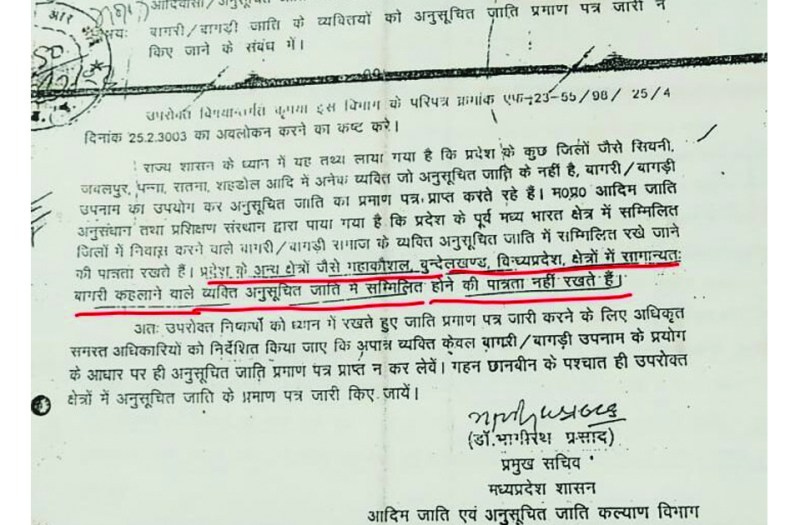 आदिवासी/अनुसूचित जा
बागरी/बागड़ी जाति के व्यक्तियों को अनुसूचित जाति प्रमाण पत्र जारी न
किए जाने के संबंध में।
उपरोक्त विषयान्तर्गत कृपया इस विभाग के परिपत्र क्रमांक एफ-23-55/98/25/4
दिनांक 25.2.3003 का अवलोकन करने का कष्ट करे।
राज्य शासन के ध्यान में यह तथ्य लाया गया है कि प्रदेश के कुछ जिलों जैसे सिवनी,
जबलपुर, पन्ना, सतना, शहडोल आदि में अनेक व्यक्ति जो अनुसूचित जाति के नहीं है, बागरी/बागड़ी
उपनाम का उपयोग कर अनुसूचित जाति का प्रमाण पत्र प्राप्त करते रहे हैं। म०प्र० आदिम जाति
अनुसंधान तथा प्रशिक्षण संस्थान द्वारा पाया गया है कि प्रदेश के पूर्व मध्य भारत क्षेत्र में सम्मिलित
जिलों में निवास करने वाले बागरी/बागड़ी समाज के व्यक्ति अनुसूचित जाति में सम्मिलित रखे जाने
की पात्रता रखते हैं। प्रदेश के अन्य क्षेत्रों जैसे महाकौशल, बुन्देलखण्ड, विन्ध्यप्रदेश, क्षेत्रों में सामान्यतः
बागरी कहलाने वाले व्यक्ति अनुसूचित जाति में सम्मिलित होने की पात्रता नहीं रखते हैं।
अतः उपरोक्त निष्कर्षों को ध्यान में रखते हुए जाति प्रमाण पत्र जारी करने के लिए अधिकृत
समस्त अधिकारियों को निर्देशित किया जाए कि अपात्र व्यक्ति केवल बागरी/बागड़ी उपनाम के प्रयोग
के आधार पर ही अनुसूचित जाति प्रमाण पत्र प्राप्त न कर लेवें। गहन छानबीन के पश्चात ही उपरोक्त
क्षेत्रों में अनुसूचित जाति के प्रमाण पत्र जारी किए जायें।
(डॉ.भागीरथ प्रसाद)
प्रमुख सचिव
मध्यप्रदेश शासन
आदिम जाति एवं अनुसूचित जाति कल्याण विभाग